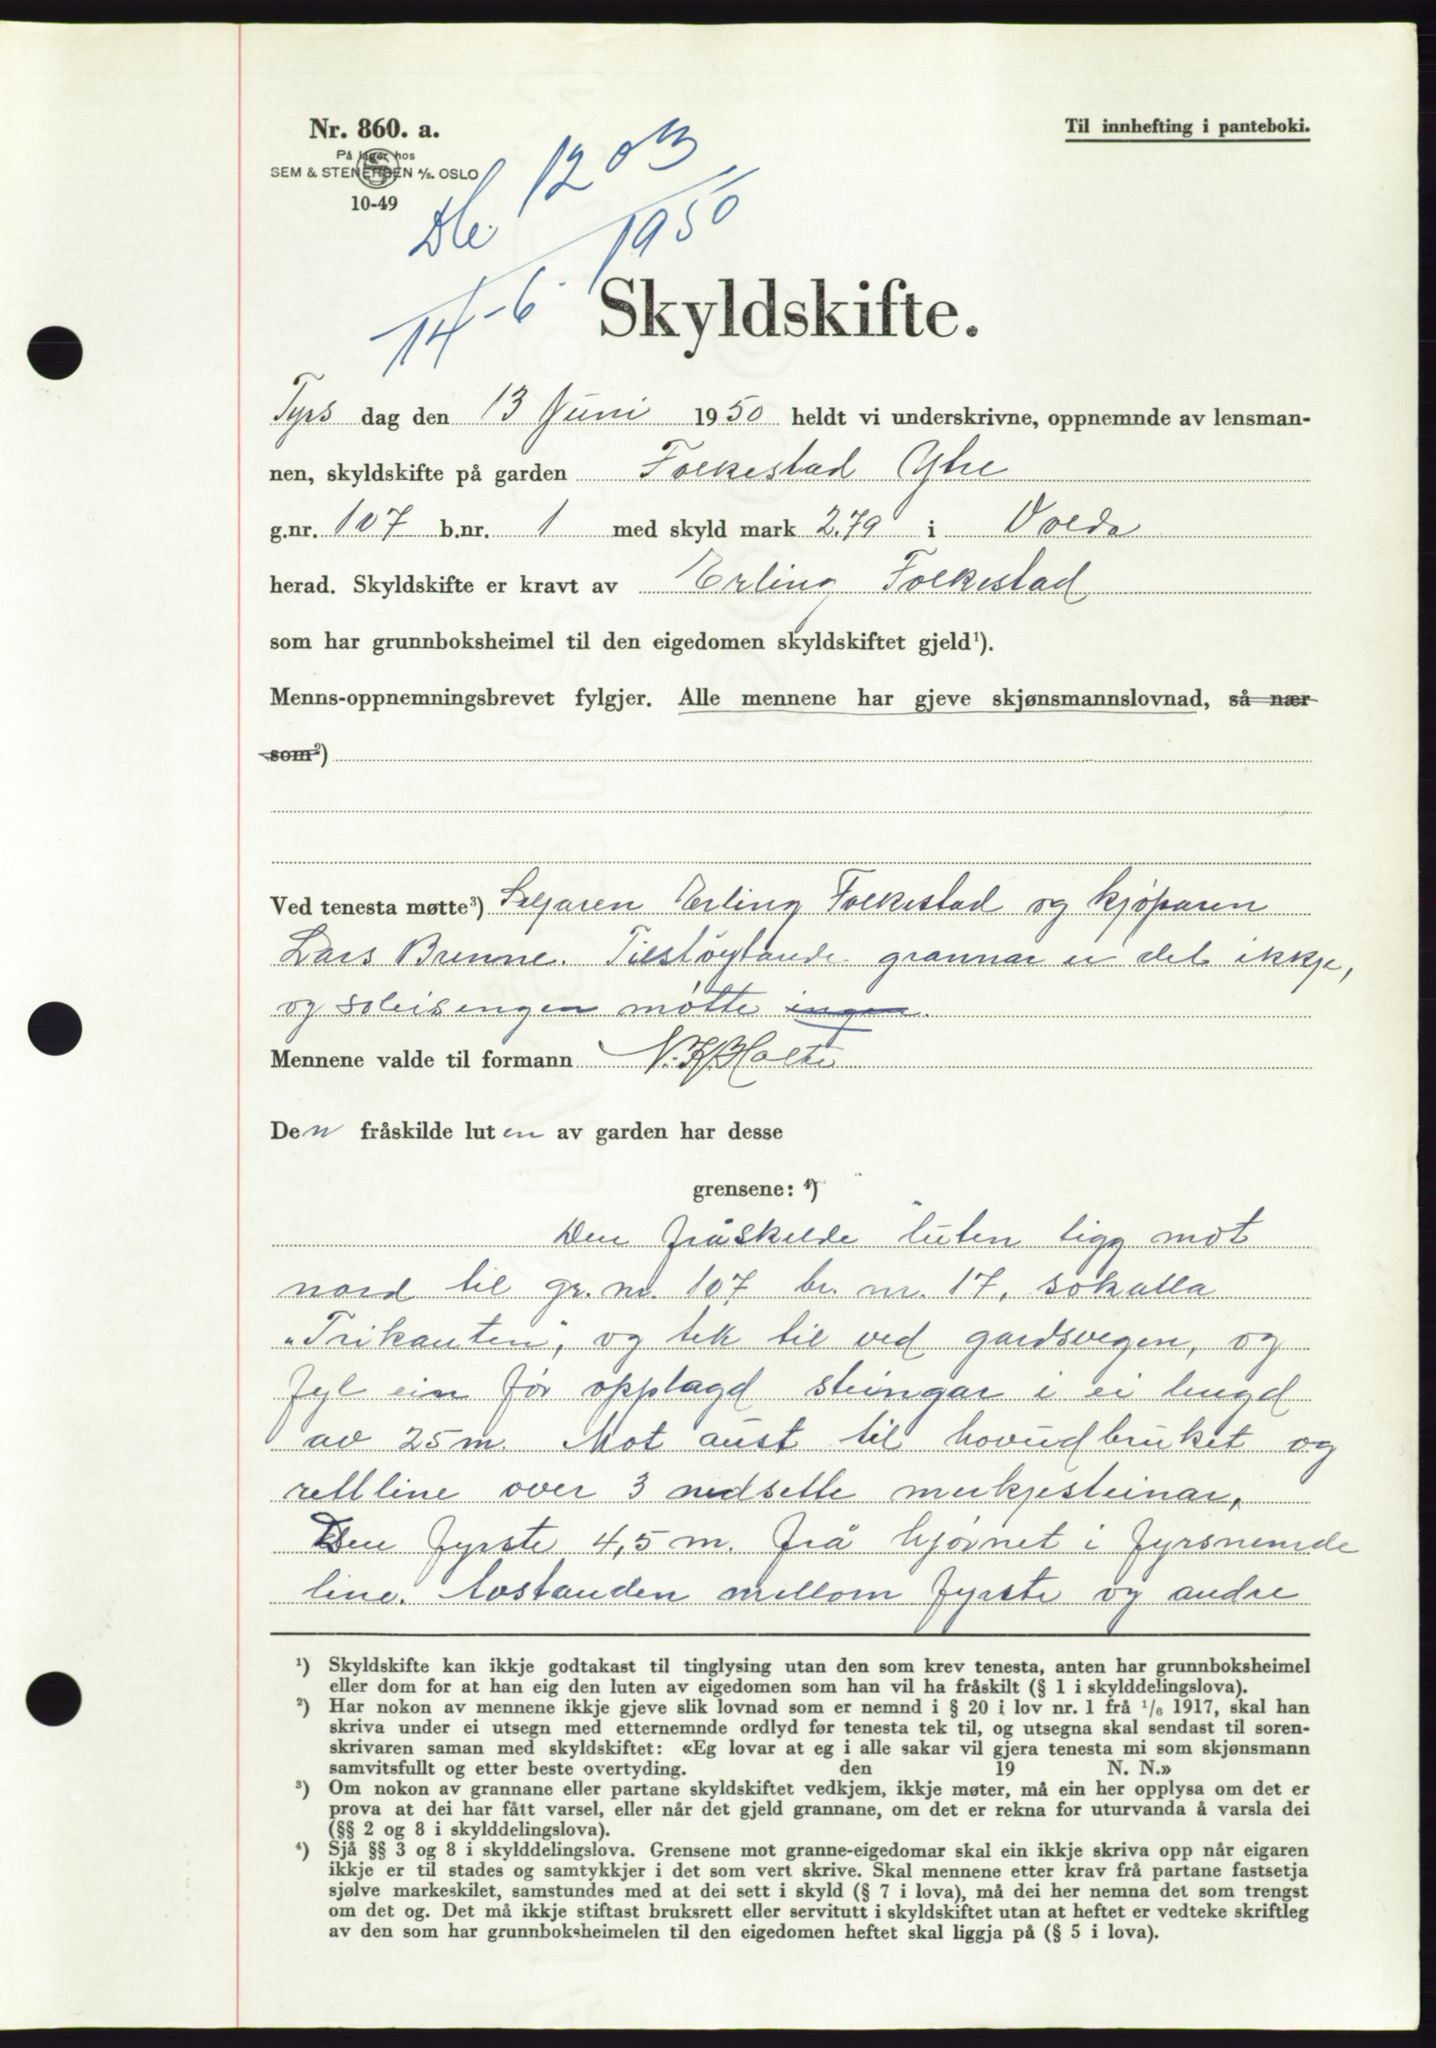 Nr. 860. a.
Til innhefting i panteboki.
På lager hos
SEM & STENERSEN A/S. OSLO
10-49
1203
1950
14-6
Skyldskifte.
Tyrs dag den 13 Juni 1950 heldt vi underskrivne, oppnemnde av lensman-
nen, skyldskifte på garden Folkestad Ytre
g.nr. 107 b.nr. 1 med skyld mark 2.79 i Volda
herad. Skyldskifte er kravt av Erling Folkestad
som har grunnboksheimel til den eigedomen skyldskiftet gjeld¹).
Menns-oppnemningsbrevet fylgjer. Alle mennene har gjeve skjønsmannslovnad, så nær
som²)
Ved tenesta møtte³) Seljaren Erling Folkestad og kjøparen
Lars Brenne. Tilstøytande grannar er det ikkje,
og soleis ingen møtte ingen.
Mennene valde til formann Holte
Den fråskilde luten av garden har desse
grensene: ⁴)
Den fråskilde luten ligg mot
nord til gr. nr. 107 br. nr. 17, sokalla
"Trikanten", og tek til ved gardsvegen, og
fyl ein før opplagd steingar i ei lengd
av 25 m. Mot aust til hovudbruket og
rettline over 3 nedsette merkjesteinar,
Den fyrste 4,5 m. frå hjørnet i fyrsnemde
line. Avstanden mellom fyrste og andre
¹) Skyldskifte kan ikkje godtakast til tinglysing utan den som krev tenesta, anten har grunnboksheimel
eller dom for at han eig den luten av eigedomen som han vil ha fråskilt (§ 1 i skylddelingslova).
²) Har nokon av mennene ikkje gjeve slik lovnad som er nemnd i § 20 i lov nr. 1 frå ¹/₆ 1917, skal han
skriva under ei utsegn med etternemnde ordlyd før tenesta tek til, og utsegna skal sendast til soren-
skrivaren saman med skyldskiftet: «Eg lovar at eg i alle sakar vil gjera tenesta mi som skjønsmann
samvitsfullt og etter beste overtyding. den 19 N. N.»
³) Om nokon av grannane eller partane skyldskiftet vedkjem, ikkje møter, må ein her opplysa om det er
prova at dei har fått varsel, eller når det gjeld grannane, om det er rekna for uturvanda å varsla dei
(§§ 2 og 8 i skylddelingslova).
⁴) Sjå §§ 3 og 8 i skylddelingslova. Grensene mot granne-eigedomar skal ein ikkje skriva opp når eigaren
ikkje er til stades og samtykkjer i det som vert skrive. Skal mennene etter krav frå partane fastsetja
sjølve markeskilet, samstundes med at dei sett i skyld (§ 7 i lova), må dei her nemna det som trengst
om det og. Det må ikkje stiftast bruksrett eller servitutt i skyldskiftet utan at heftet er vedteke skriftleg
av den som har grunnboksheimelen til den eigedomen heftet skal liggja på (§ 5 i lova).